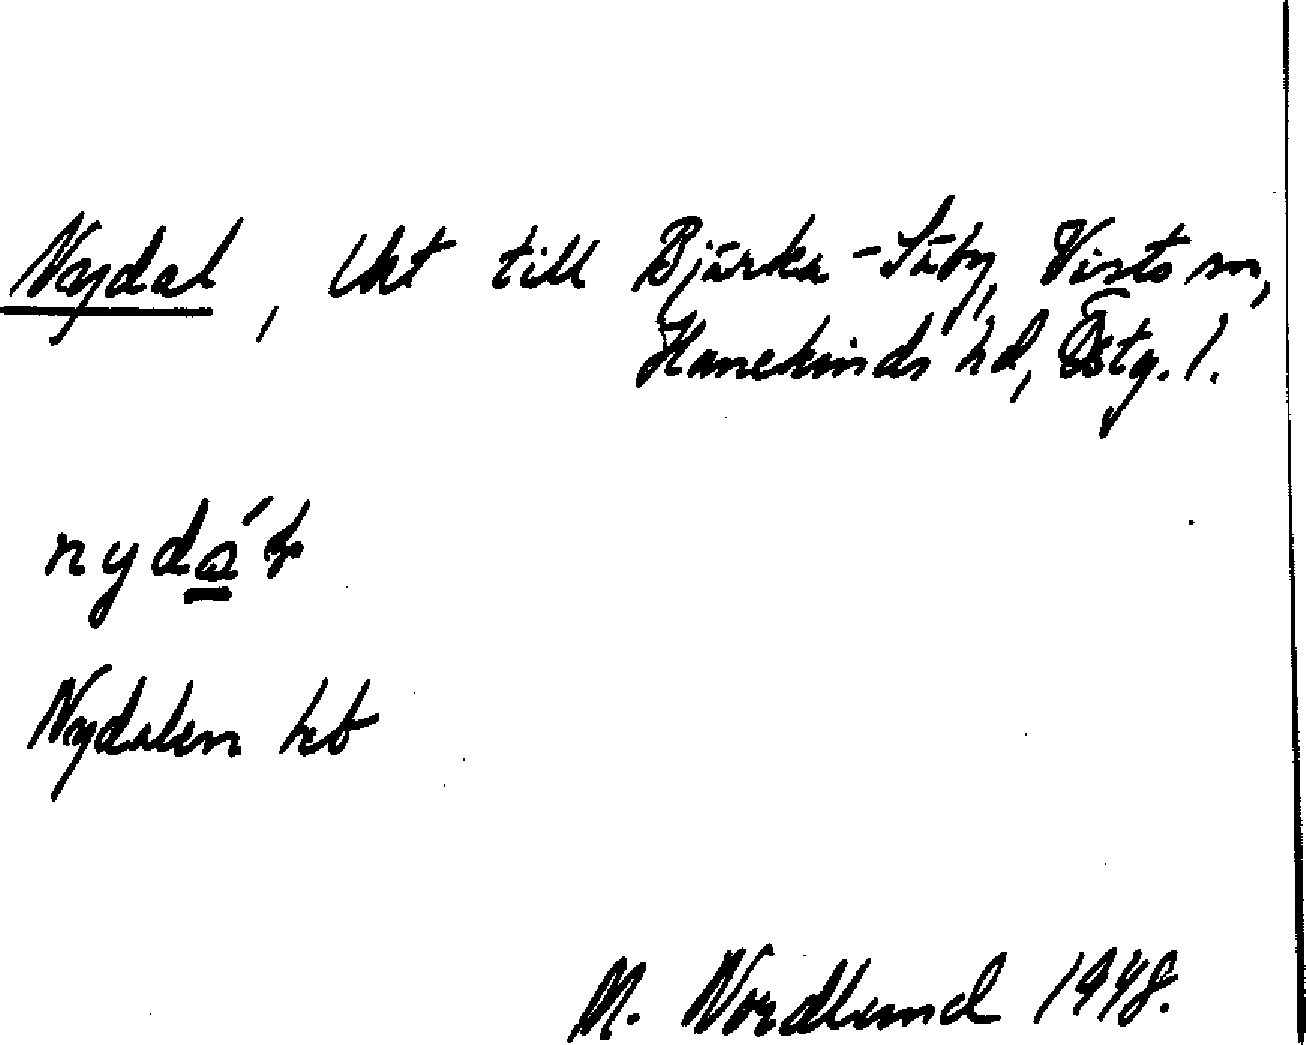 Nydal, Uht till Bjärka-Säby, Vists sn,
Hanekinds hd, Östg. l.
nydá
Nydalen hb
M. Nordlund 1948.